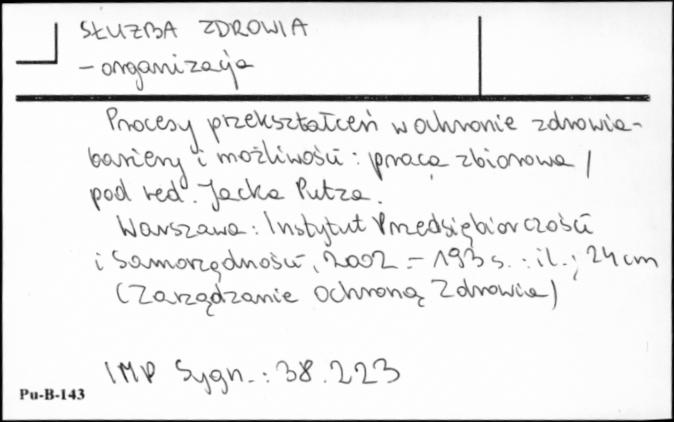 SŁUŻBA ZDROWIA
- organizacja
Procesy przekształceń w ochronie zdrowia -
bariery i możliwości : praca zbiorowa /
pod red. Jacka Putza.
Warszawa : Instytut Przedsiębiorczości
i Samorządności, 2002. - 193 s. : il. ; 24 cm
(Zarządzanie Ochroną Zdrowia)
IMP Sygn. : 38.223
Pu-B-143